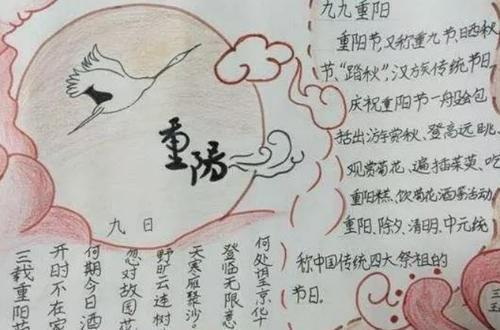 九九重阳
重阳节,又称重九节、晒秋
节、“踏秋”,汉族传统节日。
庆祝重阳节一般会包
括出游赏秋、登高远眺、
观赏菊花、遍插茱萸、吃
重阳糕、饮菊花酒等活动
重阳、除夕、清明、中元统
称中国传统四大祭祖的
节日。
重陽
九日
三载重阳
开时不在家
何期今日酒
忽对故园花
野旷云连树
天寒雁聚沙。
登临无限意
何处望京